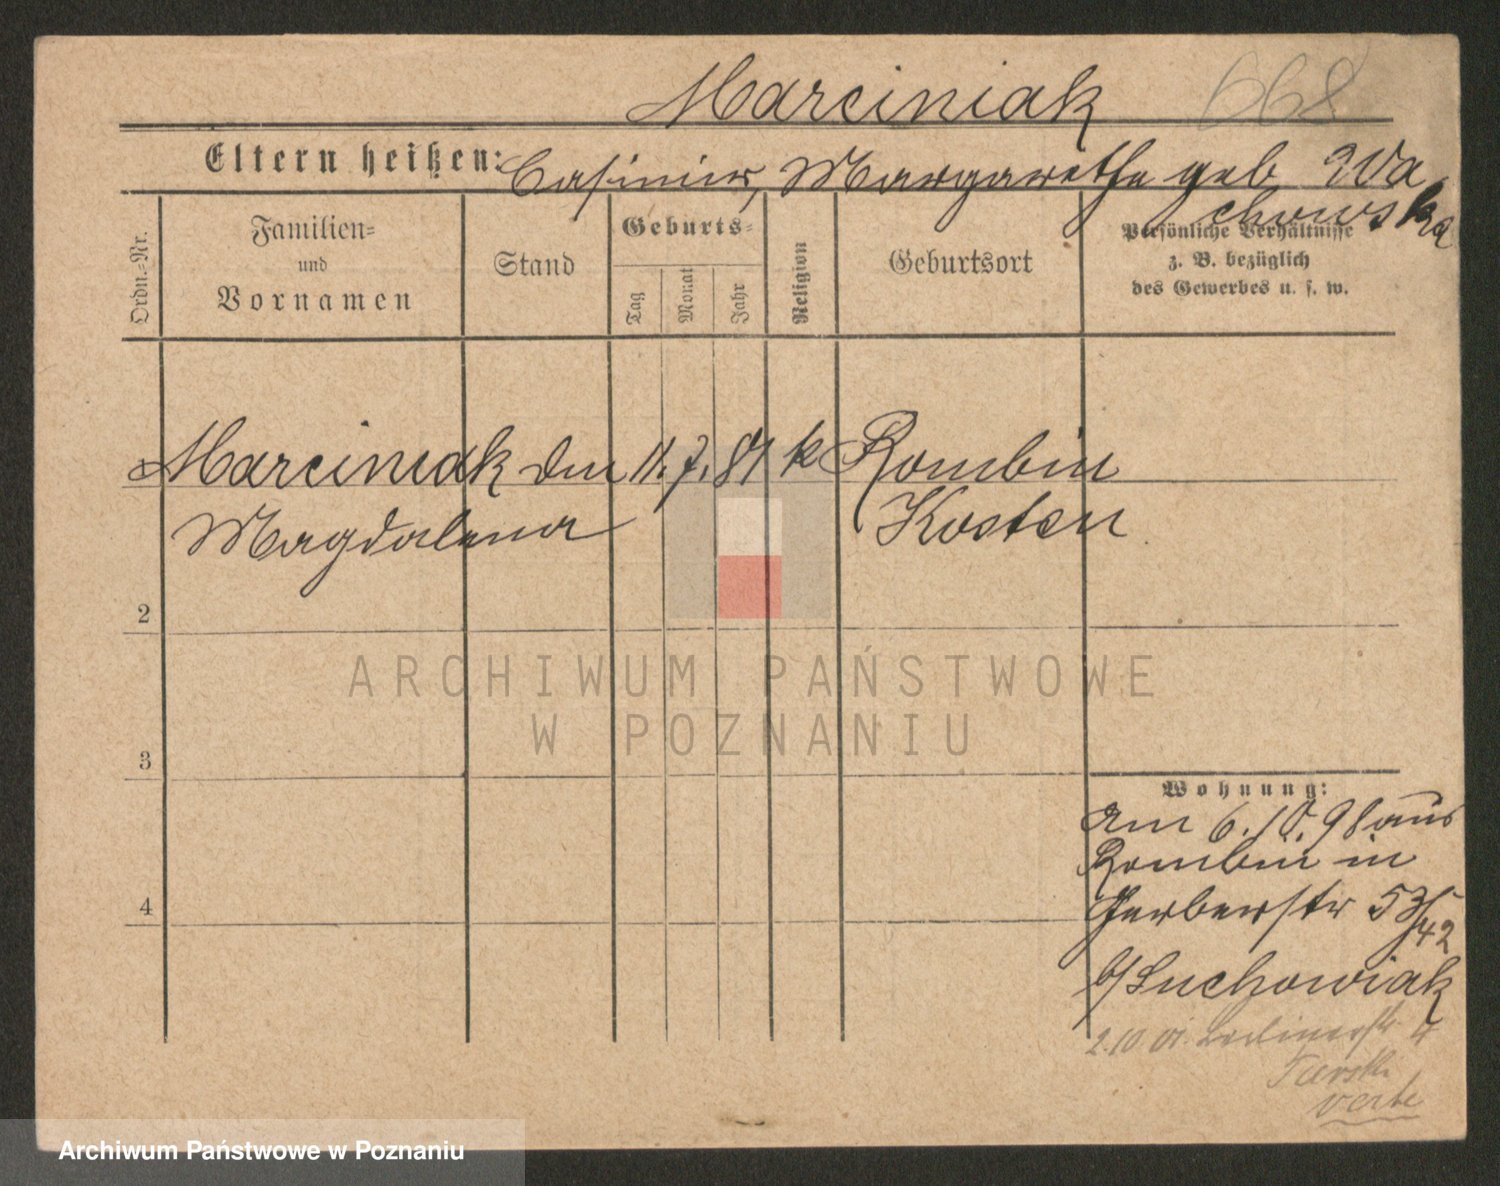 Marciniak 668
Eltern heißen: Casimir, Margarethe geb Wa
chowska
Ordn.-Nr.
Familien-
und
Vornamen
Stand
Geburts-
Tag
Monat
Jahr
Religion
Geburtsort
Persönliche Verhältnisse
z. B. bezüglich
des Gewerbes u. s. w.
1 Marciniak Dm 11. 7. 81 k Rombin
Magdalena Kosten
2
ARCHIWUM PAŃSTWOWE
W POZNANIU
3
Wohnung:
Am 6. 10. 98 aus
Rombin in
4
Gerberstr 53/42
b/ Suchowiak
2.10 01. Berlinerstr 4
verte
Archiwum Państwowe w Poznaniu